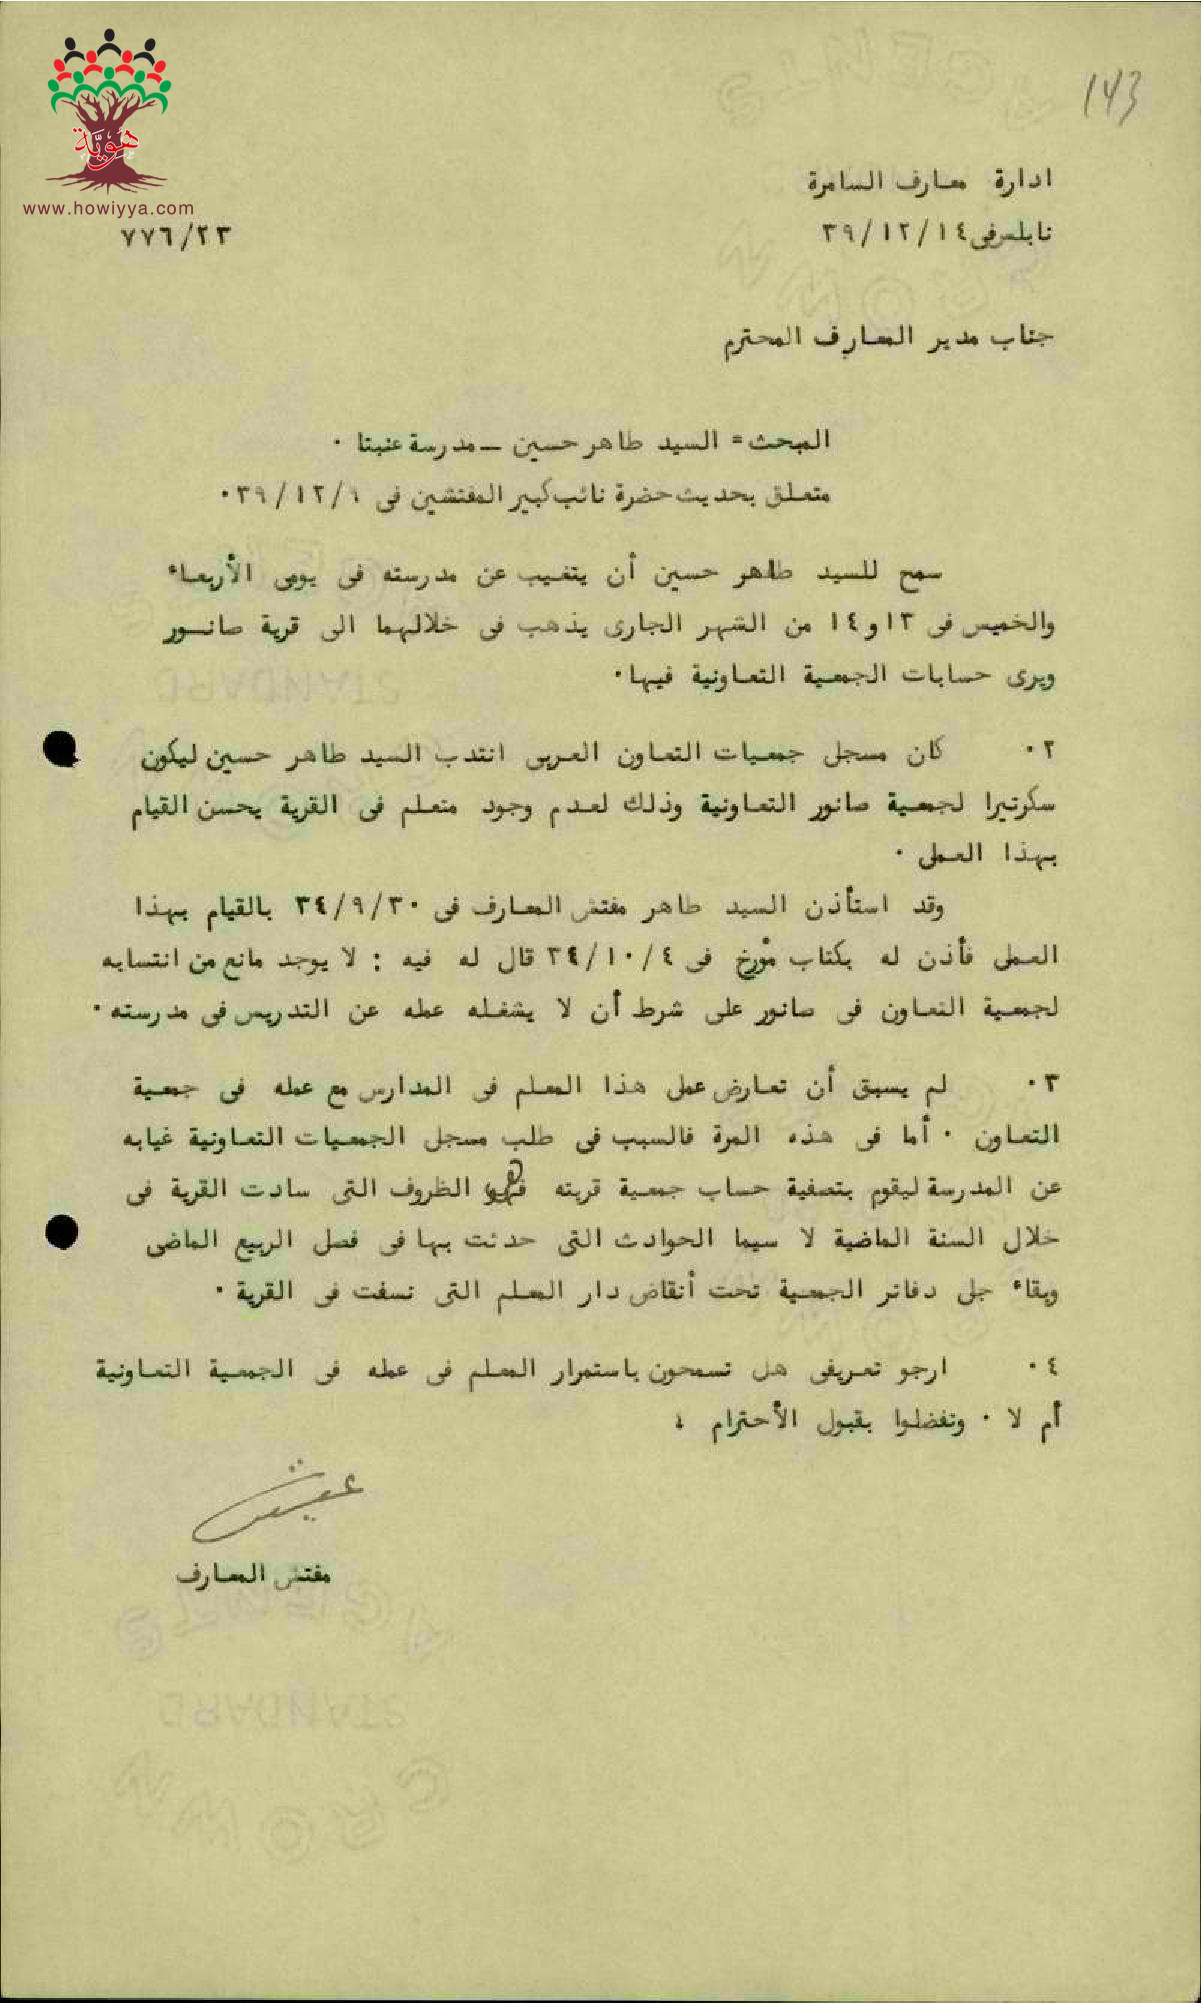 143
هوية
www.howiyya.com
ادارة معارف السامرة
نابلس فى ١٤/ ١٢/ ٣٩
٧٧٦/٢٣
جناب مدير المعارف المحترم
المبحث = السيد طاهر حسين – مدرسة عنبتا ٠
متعلق بحديث حضرة نائب كبير المفتشين فى ٩/ ١٢/ ٣٩٠
سمح للسيد طاهر حسين أن يتغيب عن مدرسته فى يومى الأربعاء
والخميس فى ١٣ و ١٤ من الشهر الجارى يذهب فى خلالهما الى قرية صانور
ويرى حسابات الجمعية التعاونية فيها٠
٢٠ كان مسجل جمعيات التعاون العربى انتدب السيد طاهر حسين ليكون
سكرتيرا لجمعية صانور التعاونية وذلك لعدم وجود متعلم فى القرية يحسن القيام
بهذا العمل ٠
وقد استأذن السيد طاهر مفتش المعارف فى ٣٤/٩/٣٠ بالقيام بهذا
العمل فأذن له بكتاب مؤرخ فى ٤/ ١٠/ ٣٤ قال له فيه : لا يوجد مانع من انتسابه
لجمعية التعاون فى صانور على شرط أن لا يشغله عمله عن التدريس فى مدرسته ٠
٣٠ لم يسبق أن تعارض عمل هذا المعلم فى المدارس مع عمله فى جمعية
التعاون ٠ أما فى هذه المرة فالسبب فى طلب مسجل الجمعيات التعاونية غيابه
عن المدرسة ليقوم بتصفية حساب جمعية قريته هو الظروف التى سادت القرية فى
خلال السنة الماضية لا سيما الحوادث التى حدثت بها فى فصل الربيع الماضى
وبقاء جل دفاتر الجمعية تحت أنقاض دار المعلم التى نسفت فى القرية ٠
٤٠ ارجو تعريفى هل تسمحون باستمرار المعلم فى عمله فى الجمعية التعاونية
أم لا ٠ وتفضلوا بقبول الأحترام ؛
مفتش المعارف
AGENTS
STANDARD
CROWN